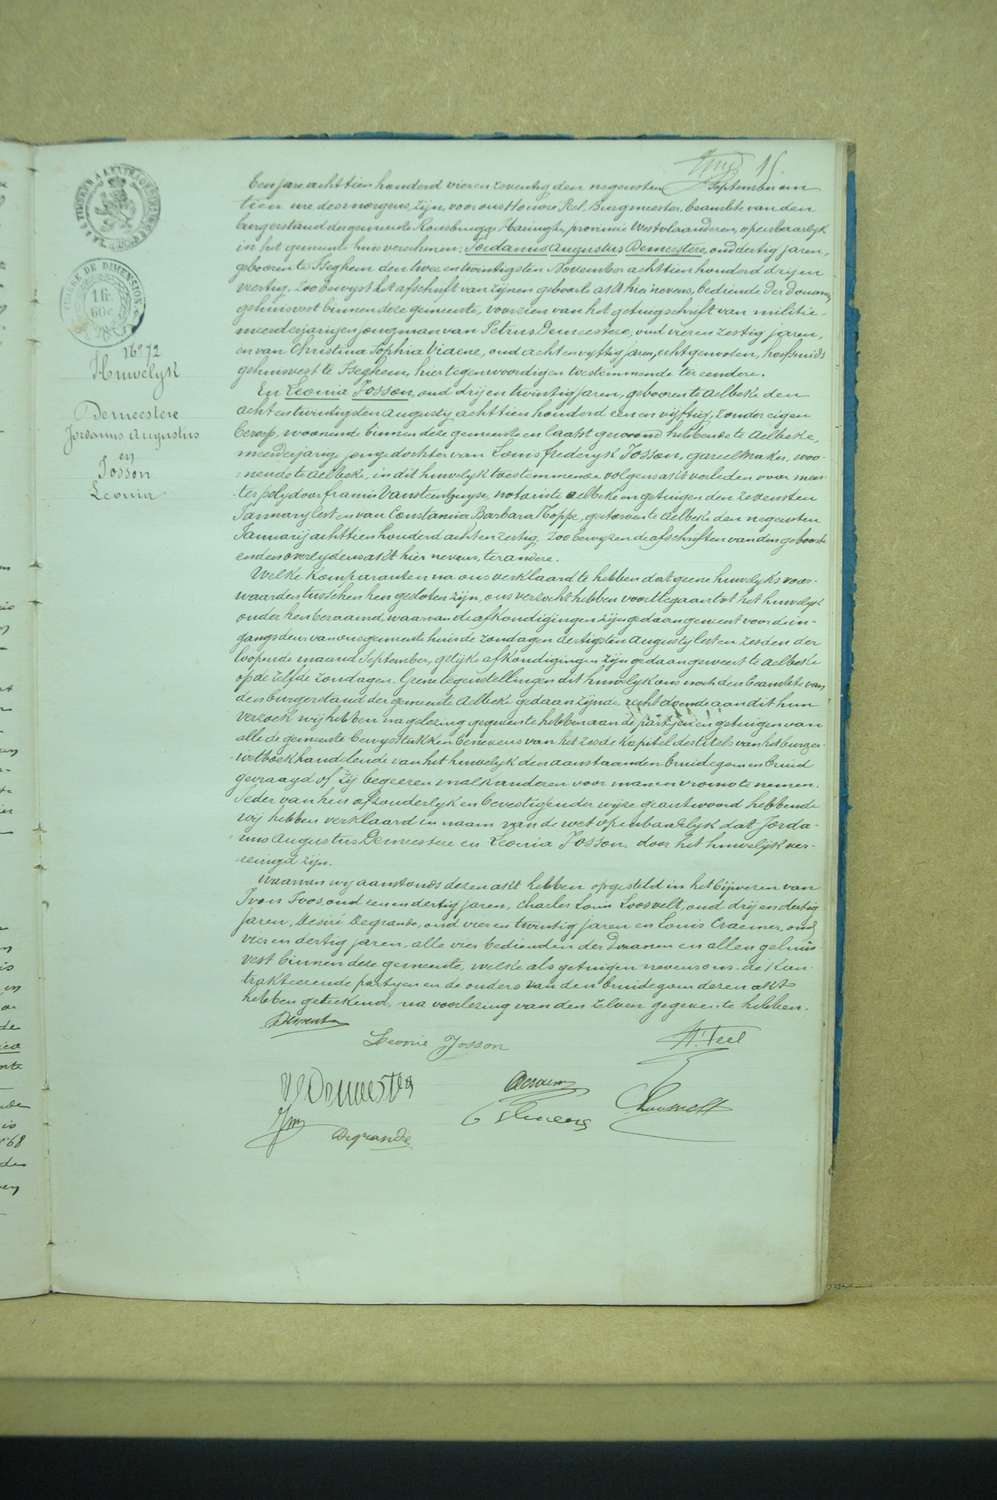 15
TIMBRE DE DIMENSION
N° 72
Huwelijk
Demeestere
Jordanus Augustus
en
Josson
Leonia
Een jare acht tien honderd vier en zeventig den negensten September om
tien ure des morgens, zijn, voor ons Honoré Rel, Burgmeester, beambte van den
burgerstand der gemeente Rousbrugge Haringhe, provincie Westvlaanderen, openbaarlijk
in het gemeente huis verschenen: Jordanus Augustus Demeestere, oud dertig jaren,
geboren te Iseghem den twee en twintigsten November acht tien honderd drij en
veertig, zoo bewyst het afschrift van zijnen geboorte akt hier nevens, bediende der douanen,
gehuisvest binnen deze gemeente, voorzien van het getuigschrift van militie
meerderjarigen jongman van Petrus Demeestere, oud vier en zestig jaren
en van Christina Sophia Viaene, oud acht en vyftig jaren, echtgenoten, hoefsmids
gehuisvest te Iseghem, hier tegenwoordig en toestemmende ter eendere.
En Leonia Josson, oud drij en twintig jaren, geboren te Aelbeke den
acht en twintigsten augusty acht tien honderd een en vijftig, zonder eigen
beroep, woonende binnen deze gemeente en laatst gewoond hebbende te Aelbeke,
meerderjarige jonge dochter van Louis frederyk Josson, gareelmaker, woo-
nende te Aelbeke, in dit huwelyk toestemmende volgens akt verleden voor mees-
ter polydoor francis Vansteenhuyse, notaris te aelbeke en getuigen den zevensten
January lest en van Constantia Barbara Hoppe, gestorven te Aelbeke den negensten
Januarij acht tien honderd acht en zestig, zoo bewyzen de afschriften van den geboorte
en den overlydens akt hier nevens, ter andere.
Welke komparanten na ons verklaard te hebben dat geene huwelyks voor-
waarden tusschen hen gesloten zijn, ons verzocht hebben voorttegaan tot het huwelijk
onder hen beraamd waarvan de afkondigingen zijn gedaan geweest voor den in-
gangs deur van ons gemeente huis de zondagen dertigsten Augusty lest en zesden der
loopende maand September, gelyke afkondigingen zijn gedaan geweest te aelbeke
op de zelfde zondagen. Geene tegenstellingen dit huwelyk ons noch den beambte van
den burgerstand der gemeente Aelbeke gedaan zijnde recht doende aan dit hun
verzoek wij hebben na gelezing gegeven te hebben aan de partyen en getuigen van
alle de gemeente bewysstukken benevens van het zesde kapitel des titels van het burger
wetboek handelende van het huwelyk den aanstaanden bruidegom en bruid
gevraagd of zij begeeren malkanderen voor man en vrouw te nemen.
Ieder van hen afzonderlyk en bevestigender wyse geantwoord hebbende
wij hebben verklaard in naam van de wet openbaarlyk dat Jorda-
nus Augustus Demeestere en Leonia Josson, door het huwelijk ver-
eenigd zijn.
Waarvan wy aanstonds dezen akt hebben opgesteld in het bijwezen van
Ivon Joos, oud een en dertig jaren, Charles Louis Loosvelt, oud drij en dertig
jaren, Desiré Degrande, oud vier en twintig jaren en Louis Craenen, oud
vier en dertig jaren, alle vier bedienden der Douanen en allen gehuis-
vest binnen deze gemeente, welke als getuigen nevens ons, de kon-
trakteerende partyen en de ouders van den bruidegom dezen akt
hebben geteekend, na voorlezing van den zelven gegeven te hebben.
Leonie Josson
Demeestere
Degrande